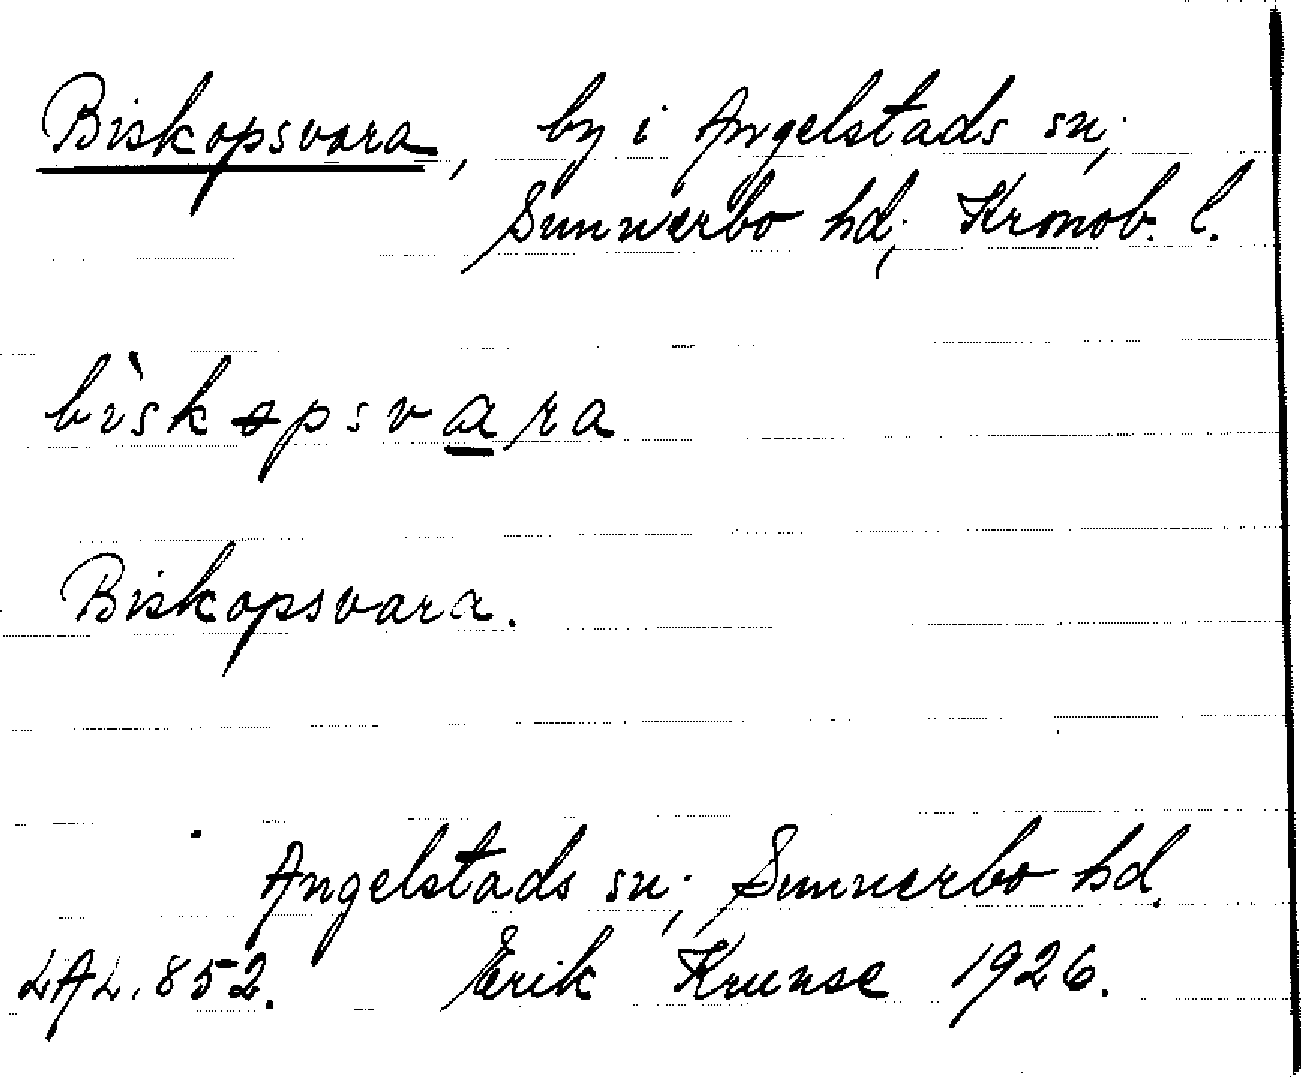 Biskopsvara, by i Angelstads sn;
Sunnerbo hd; Kronob. l.
bìskopsvara
Biskopsvara.
Angelstads sn; Sunnerbo hd.
LAL. 852. Erik Krunse 1926.